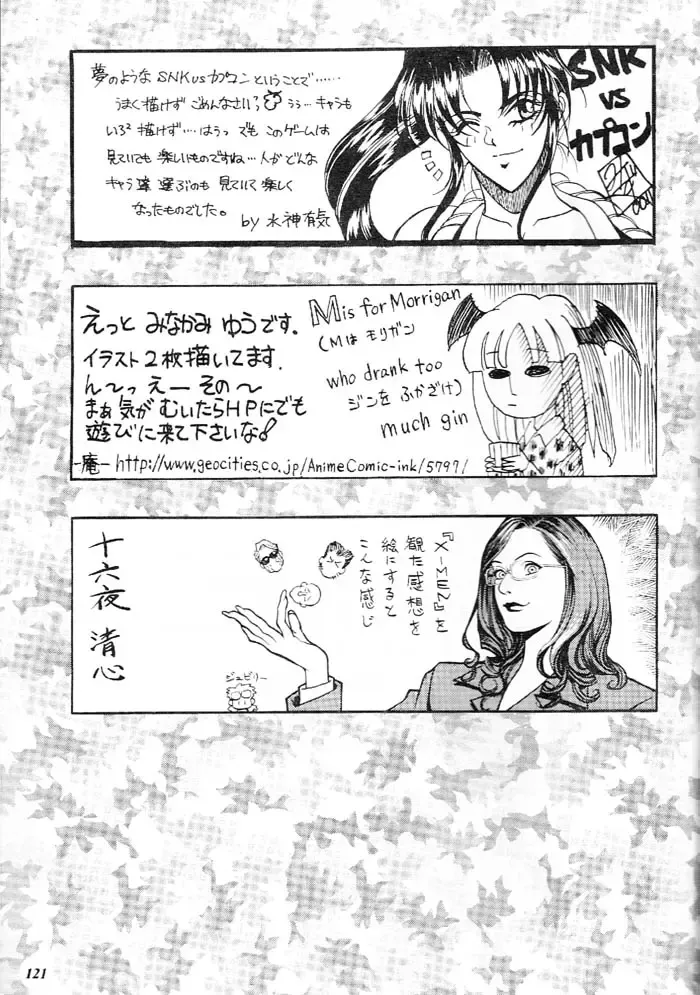 夢のような SNK vs カプコン ということで……
うまく描けず ごめんなさい？ うぅ…キャラも
いろ²描けず…はうっ でも このゲームは
見ていても 楽しいものですね…人が どんな
キャラ達 選ぶのも 見ていて 楽しく
なったものでした。
by 水神有気
SNK
VS
カプコン
えっと みなかみ ゆうです.
イラスト2枚描いてます.
ん〜っ えー その〜
まぁ 気が むいたらHPにでも
遊びに来て下さいな!
-庵- http://www.geocities.co.jp/AnimeComic-ink/5797/
M is for Morrigan
(Mは モリガン
who drank too
ジンを ふかざけ)
much gin
十六夜 清心
『X-MEN』を
観た感想を
絵にすると
こんな感じ
ジュビリー
121